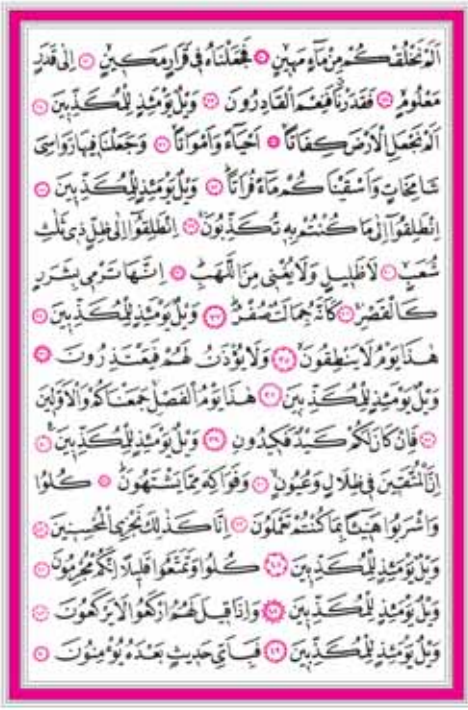 اَلَمْ نَخْلُقْكُمْ مِنْ مَٓاءٍ مَهٖينٍ ﴿٢٠﴾ فَجَعَلْنَاهُ فٖي قَرَارٍ مَكٖينٍ ﴿٢١﴾ اِلٰى قَدَرٍ
مَعْلُومٍ ﴿٢٢﴾ فَقَدَرْنَا فَنِعْمَ الْقَادِرُونَ ﴿٢٣﴾ وَيْلٌ يَوْمَئِذٍ لِلْمُكَذِّبٖينَ ﴿٢٤﴾
اَلَمْ نَجْعَلِ الْاَرْضَ كِفَاتًا ﴿٢٥﴾ اَحْيَٓاءً وَاَمْوَاتًا ﴿٢٦﴾ وَجَعَلْنَا فٖيهَا رَوَاسِيَ
شَامِخَاتٍ وَاَسْقَيْنَاكُمْ مَٓاءً فُرَاتًا ﴿٢٧﴾ وَيْلٌ يَوْمَئِذٍ لِلْمُكَذِّبٖينَ ﴿٢٨﴾
اِنْطَلِقُٓوا اِلٰى مَا كُنْتُمْ بِهٖ تُكَذِّبُونَ ﴿٢٩﴾ اِنْطَلِقُٓوا اِلٰى ظِلٍّ ذٖي ثَلٰثِ
شُعَبٍ ﴿٣٠﴾ لَا ظَلٖيلٍ وَلَا يُغْنٖي مِنَ اللَّهَبِ ﴿٣١﴾ اِنَّهَا تَرْمٖي بِشَرَرٍ
كَالْقَصْرِ ﴿٣٢﴾ كَاَنَّهُ جِمَالَتٌ صُفْرٌ ﴿٣٣﴾ وَيْلٌ يَوْمَئِذٍ لِلْمُكَذِّبٖينَ ﴿٣٤﴾
هٰذَا يَوْمُ لَا يَنْطِقُونَ ﴿٣٥﴾ وَلَا يُؤْذَنُ لَهُمْ فَيَعْتَذِرُونَ ﴿٣٦﴾
وَيْلٌ يَوْمَئِذٍ لِلْمُكَذِّبٖينَ ﴿٣٧﴾ هٰذَا يَوْمُ الْفَصْلِ جَمَعْنَاكُمْ وَالْاَوَّلٖينَ
﴿٣٨﴾ فَاِنْ كَانَ لَكُمْ كَيْدٌ فَكٖيدُونِ ﴿٣٩﴾ وَيْلٌ يَوْمَئِذٍ لِلْمُكَذِّبٖينَ ﴿٤٠﴾
اِنَّ الْمُتَّقٖينَ فٖي ظِلَالٍ وَعُيُونٍ ﴿٤١﴾ وَفَوَاكِهَ مِمَّا يَشْتَهُونَ ﴿٤٢﴾ كُلُوا
وَاشْرَبُوا هَنٖٓيـًٔا بِمَا كُنْتُمْ تَعْمَلُونَ ﴿٤٣﴾ اِنَّا كَذٰلِكَ نَجْزِي الْمُحْسِنٖينَ ﴿٤٤﴾
وَيْلٌ يَوْمَئِذٍ لِلْمُكَذِّبٖينَ ﴿٤٥﴾ كُلُوا وَتَمَتَّعُوا قَلٖيلًا اِنَّكُمْ مُجْرِمُونَ ﴿٤٦﴾
وَيْلٌ يَوْمَئِذٍ لِلْمُكَذِّبٖينَ ﴿٤٧﴾ وَاِذَا قٖيلَ لَهُمُ ارْكَعُوا لَا يَرْكَعُونَ ﴿٤٨﴾
وَيْلٌ يَوْمَئِذٍ لِلْمُكَذِّبٖينَ ﴿٤٩﴾ فَبِاَيِّ حَدٖيثٍ بَعْدَهُ يُؤْمِنُونَ ﴿٥٠﴾